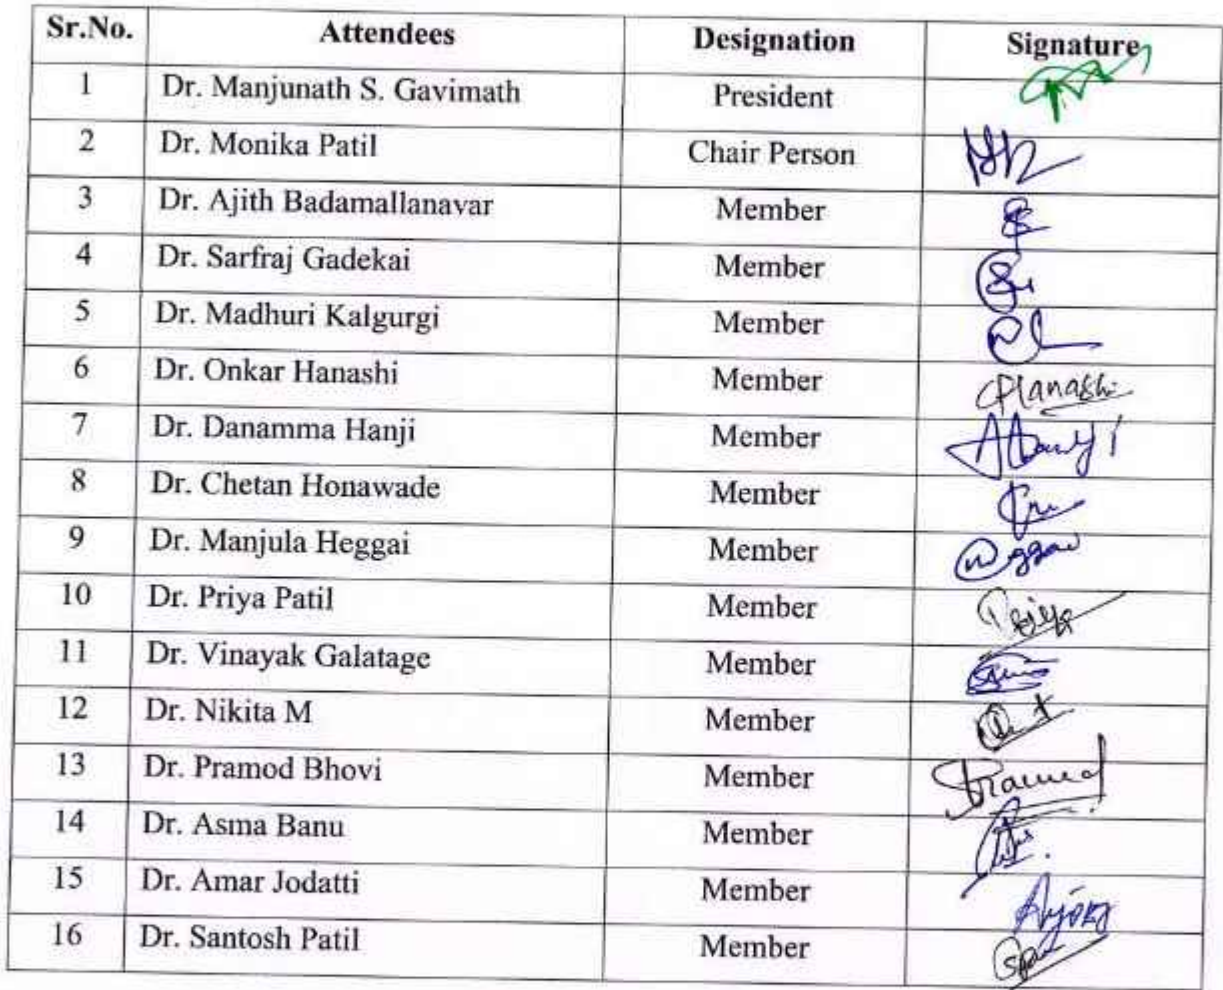 Sr.No. Attendees Designation Signature
1 Dr. Manjunath S. Gavimath President
2 Dr. Monika Patil Chair Person
3 Dr. Ajith Badamallanavar Member
4 Dr. Sarfraj Gadekai Member
5 Dr. Madhuri Kalgurgi Member
6 Dr. Onkar Hanashi Member
7 Dr. Danamma Hanji Member
8 Dr. Chetan Honawade Member
9 Dr. Manjula Heggai Member
10 Dr. Priya Patil Member
11 Dr. Vinayak Galatage Member
12 Dr. Nikita M Member
13 Dr. Pramod Bhovi Member
14 Dr. Asma Banu Member
15 Dr. Amar Jodatti Member
16 Dr. Santosh Patil Member